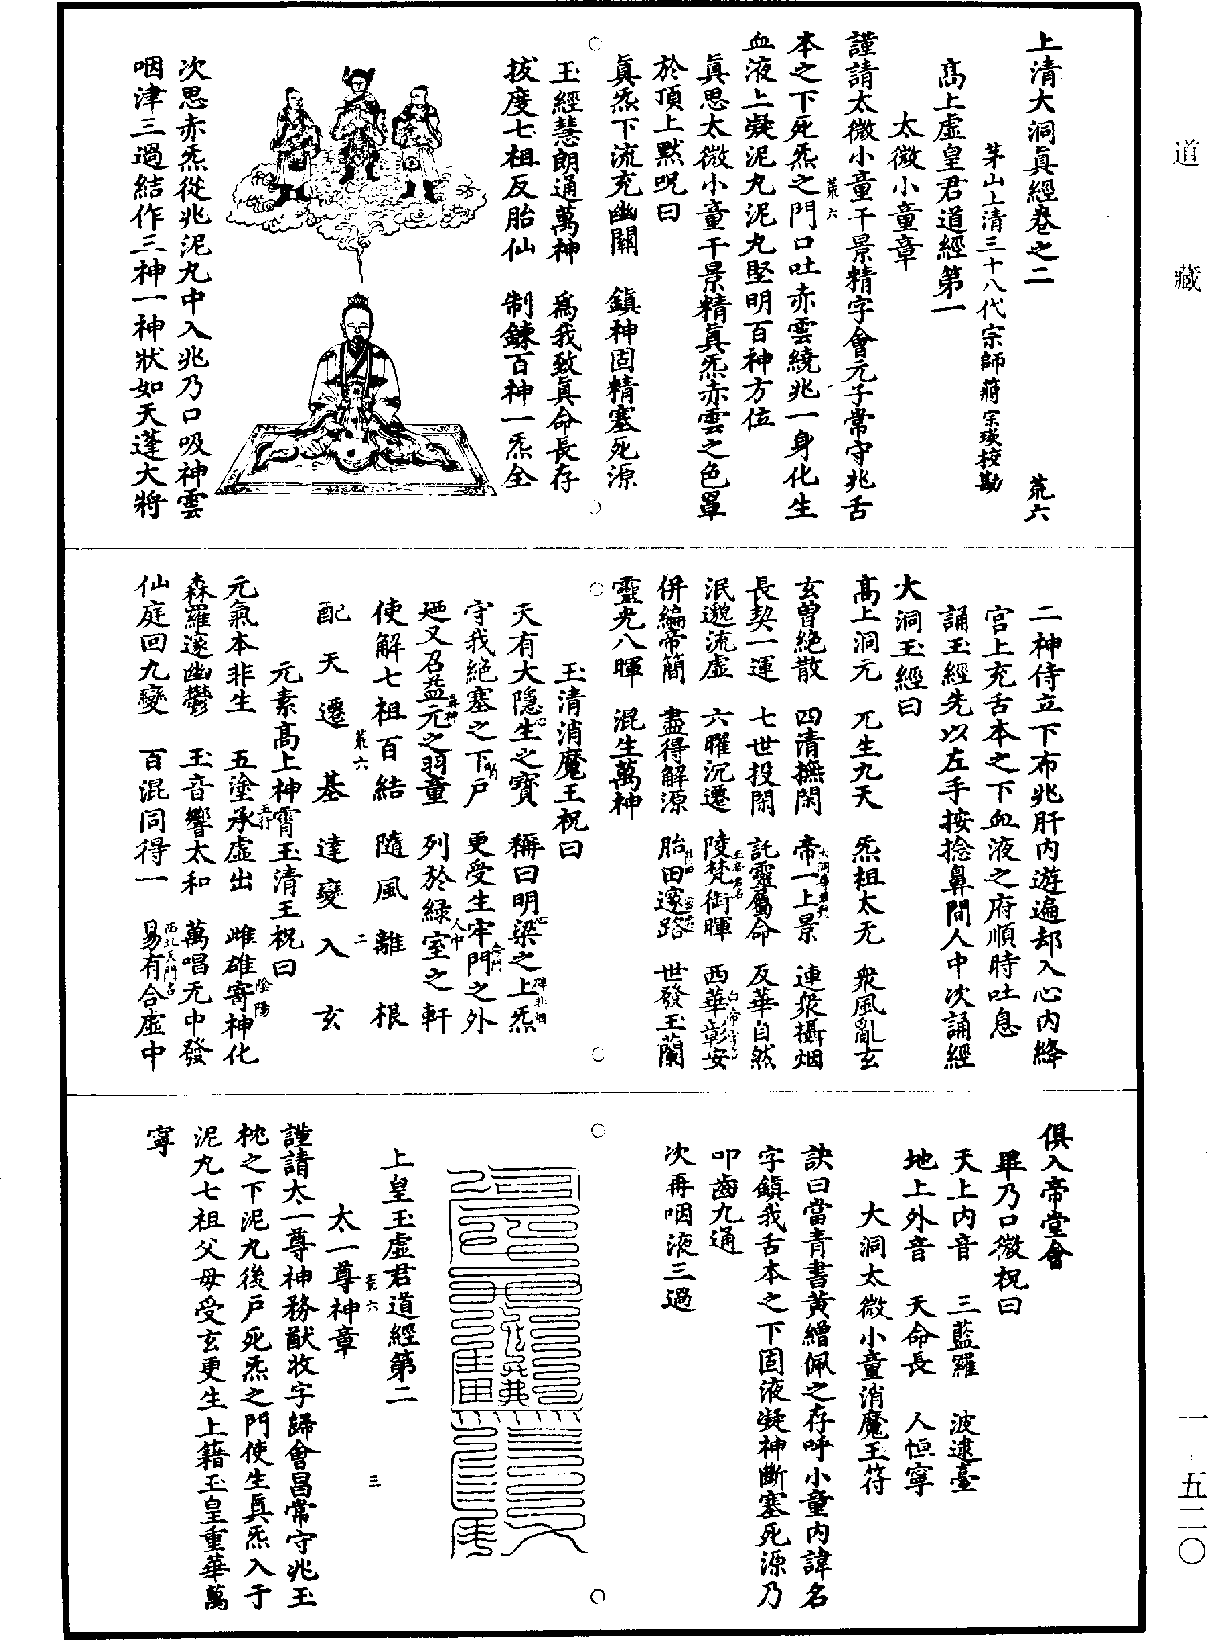 道藏
上清大洞真經卷之二 荒六
茅山上清三十八代宗師蔣宗瑛校勘
高上虛皇君道經第一
太微小童章
謹請太微小童干景精字會元子常守兆舌
本之下死炁之門口吐赤雲繞兆一身化生
血液上凝泥丸泥丸堅明百神方位
真思太微小童干景精真炁赤雲之色罩
於頂上默呪曰
真炁下流充幽關 鎮神固精塞死源
玉經慧朗通萬神 為我致真命長存
拔度七祖反胎仙 制鍊百神一炁全
次思赤炁從兆泥丸中入兆乃口吸神雲
咽津三過結作三神一神狀如天蓬大將
二神侍立下布兆肝內遊遍却入心內絳
宮上充舌本之下血液之府順時吐息
誦玉經先以左手按捻鼻間人中次誦經
大洞玉經曰
高上洞元 兀生九天 炁祖太无 衆風亂玄
玄曾絕散 四清撫閑 帝一上景 連衆攝烟
長契一運 七世投閑 託靈屬命 反華自然
泯邈流虛 六曜沉遷 陵梵街暉 西華彰安
併編帝簡 盡得解源 胎田邃路 世發玉蘭
靈光八暉 混生萬神
玉清消魔王祝曰
天有大隱生之寶 稱曰明梁之上炁
守我絕塞之下戶 更受生牢門之外
廼又召益元之羽童 列於綠室之軒
使解七祖百結 隨風離根
配天遷基達變入玄
元素高上神霄玉清王祝曰
元氣本非生 五塗承虛出 雌雄寄神化
森羅邃幽鬱 玉音響太和 萬唱无中發
仙庭回九變 百混同得一 易有合虛中
俱入帝堂會
畢乃口微祝曰
天上內音 三藍羅 波逮臺
地上外音 天命長 人恒寧
大洞太微小童消魔玉符
訣曰當青書黃繒佩之存呼小童內諱名
字鎮我舌本之下固液凝神斷塞死源乃
叩齒九通
次再咽液三過
上皇玉虛君道經第二
太一尊神章
謹請太一尊神務猷收字歸會昌常守兆玉
枕之下泥丸後戶死炁之門使生真炁入于
泥丸七祖父母受玄更生上籍玉皇重華萬
寧
一 五二〇